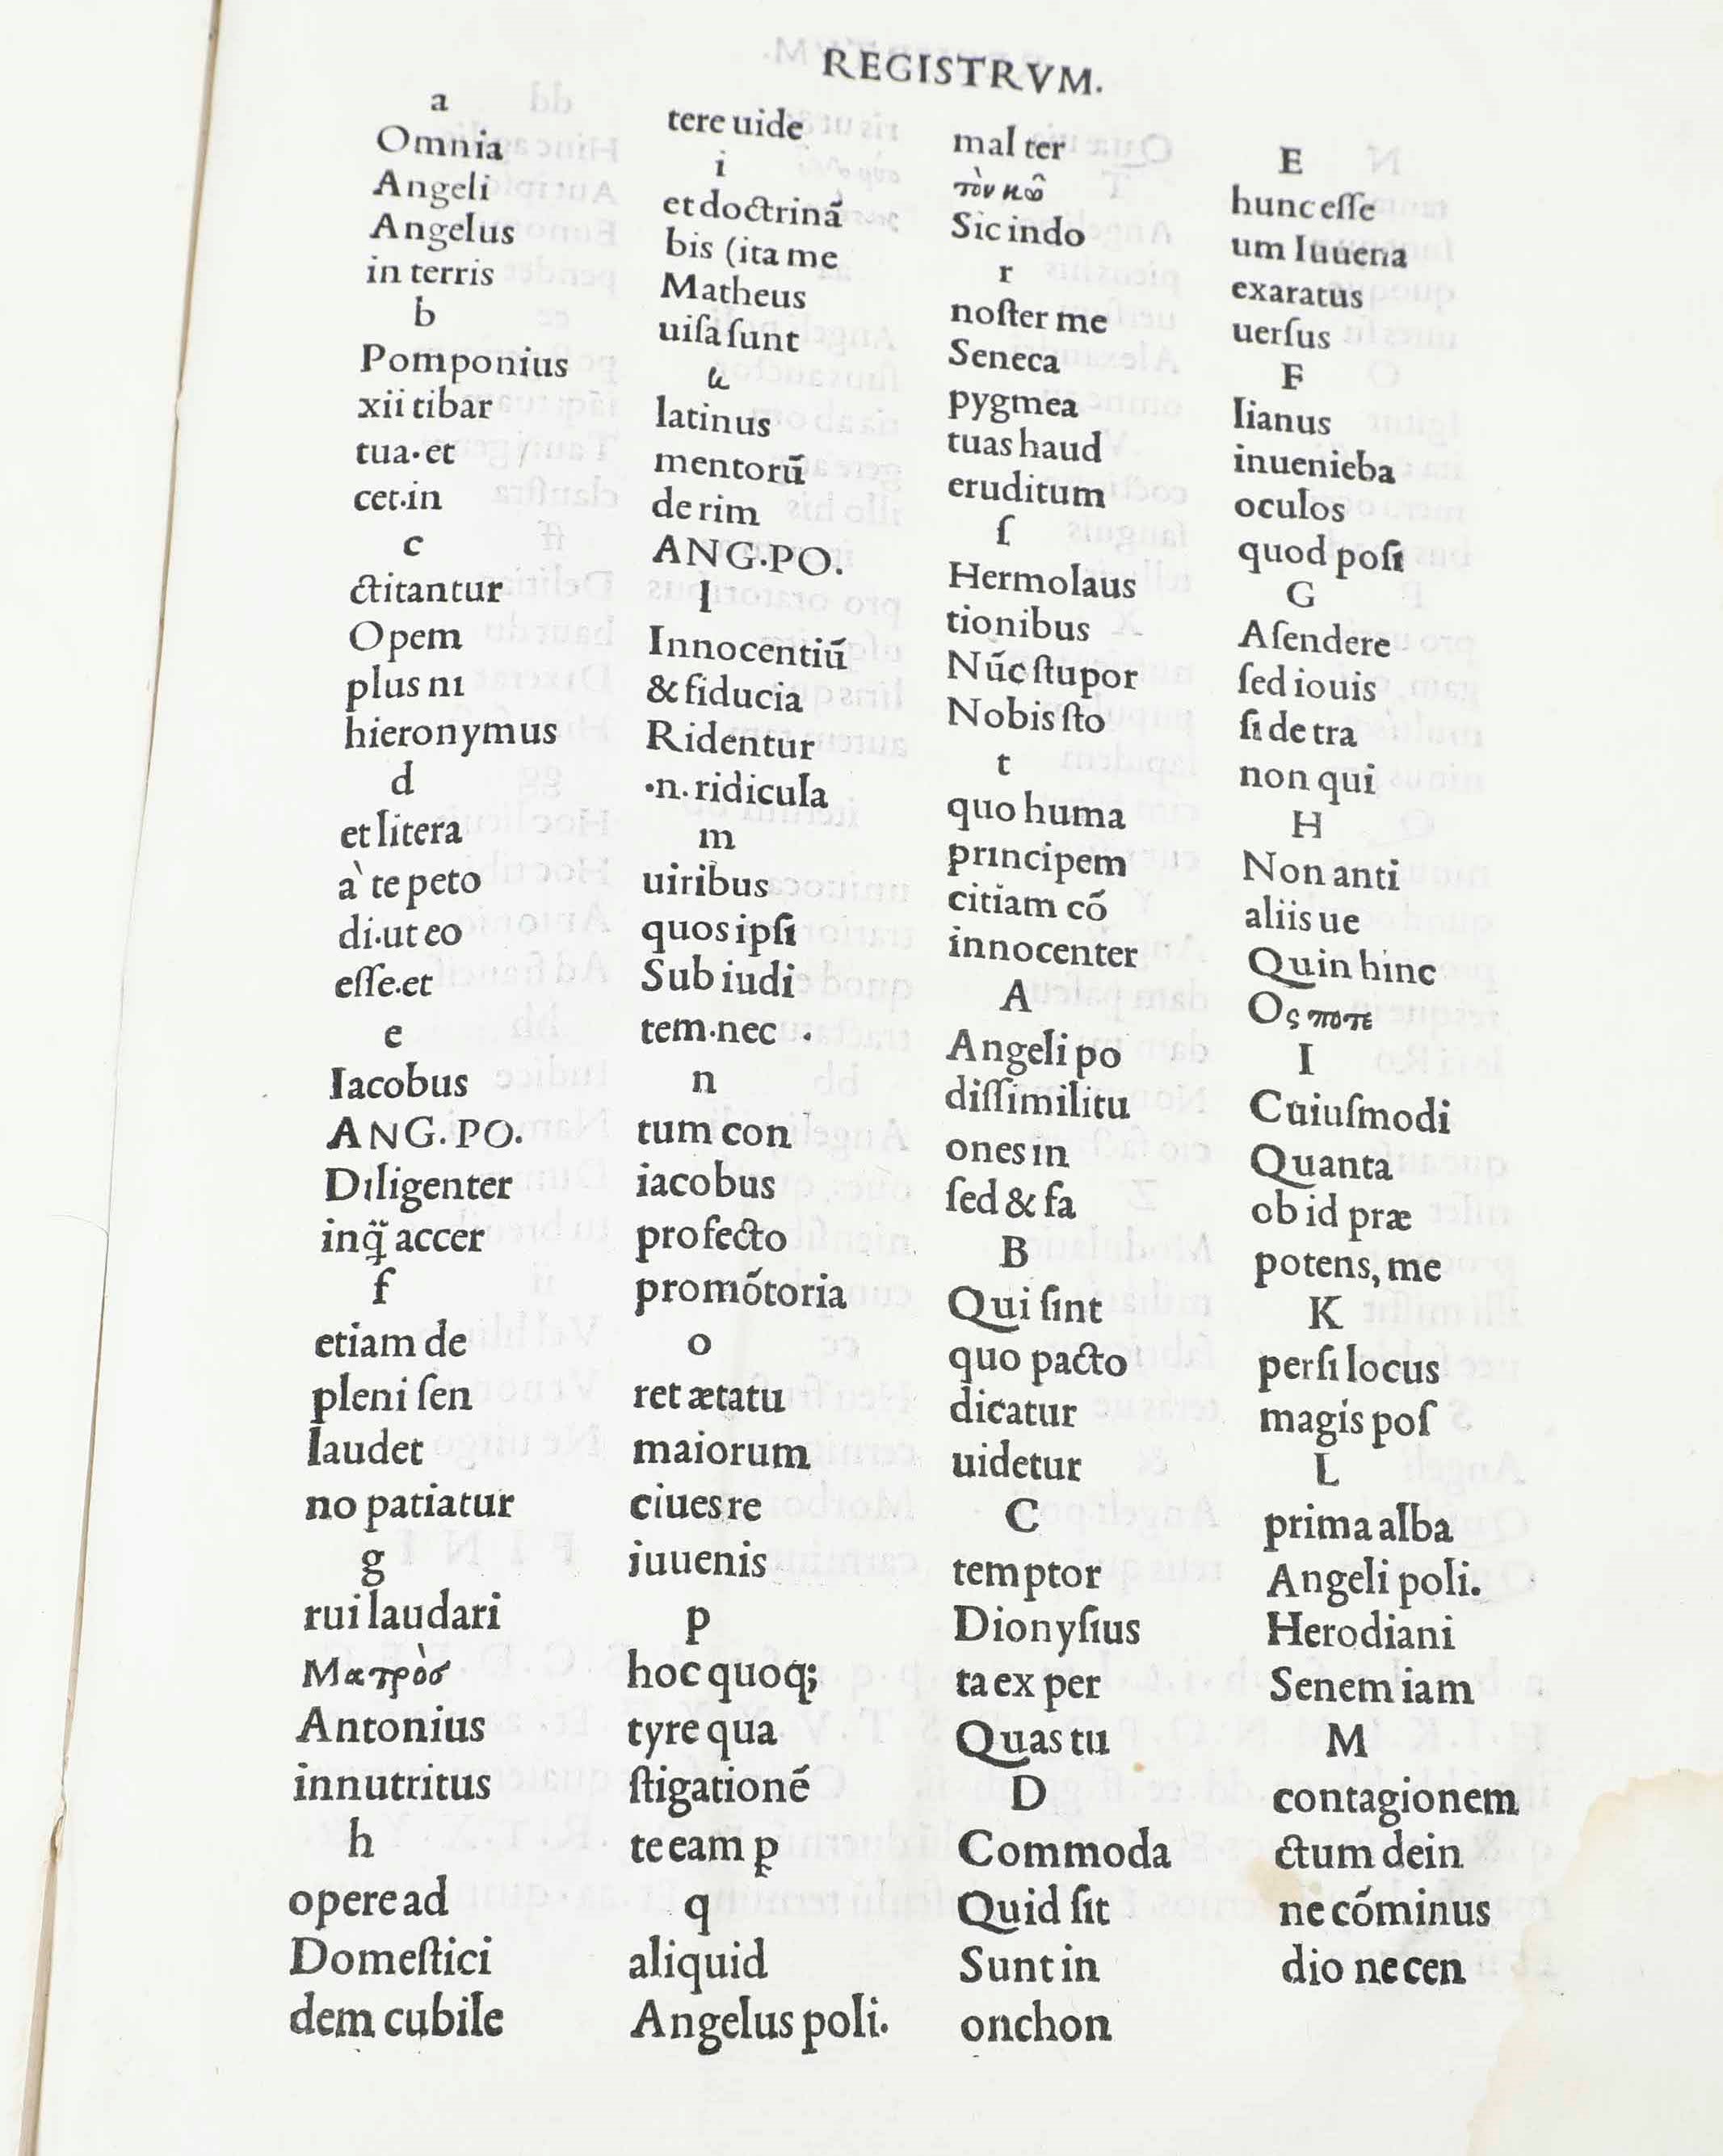 REGISTRVM.
a
Omnia
Angeli
Angelus
in terris
b
Pomponius
xii tibar
tua·et
cet·in
c
ctitantur
Opem
plus nı
hieronymus
d
et litera
a` te peto
di·ut eo
eſſe·et
e
Iacobus
ANG.PO.
Dıligenter
inq̈ accer
f
etiam de
pleni ſen
laudet
no patiatur
g
rui laudari
Ματρὸσ
Antonius
innutritus
h
opere ad
Domeſtici
dem cubile
tere uide
i
et doctrinã
bis (ita me
Matheus
uiſa ſunt
k
latinus
mentorũ
de rim
ANG.PO.
l
Innocentiũ
& fiducia
Ridentur
·n. ridicula
m
uiribus
quos ipſi
Sub iudi
tem·nec
n
tum con
iacobus
profecto
promõtoria
o
ret ætatu
maiorum
ciues re
iuuenis
p
hoc quoq;
tyre qua
ſtigationẽ
te eam ꝑ
q
aliquid
Angelus poli.
mal ter
τὸν κῶ
Sic indo
r
noſter me
Seneca
pygmea
tuas haud
eruditum
ſ
Hermolaus
tionibus
Nũc ſtupor
Nobis ſto
t
quo huma
prıncipem
citiam cõ
innocenter
A
Angeli po
diſſimilitu
ones in
ſed & fa
B
Qui ſint
quo pacto
dicatur
uidetur
C
temptor
Dionyſius
ta ex per
Quas tu
D
Commoda
Quid ſit
Sunt in
onchon
E
hunc eſſe
um Iuuena
exaratus
uerſus
F
lianus
inuenieba
oculos
quod poſt
G
Aſendere
ſed iouis
ſi de tra
non qui
H
Non anti
aliis ue
Quin hinc
Ος ποτε
I
Cuiuſmodi
Quanta
ob id præ
potens, me
K
perſi locus
magis poſ
L
prima alba
Angeli poli.
Herodiani
Senem iam
M
contagionem
ctum dein
ne cõminus
dio necen